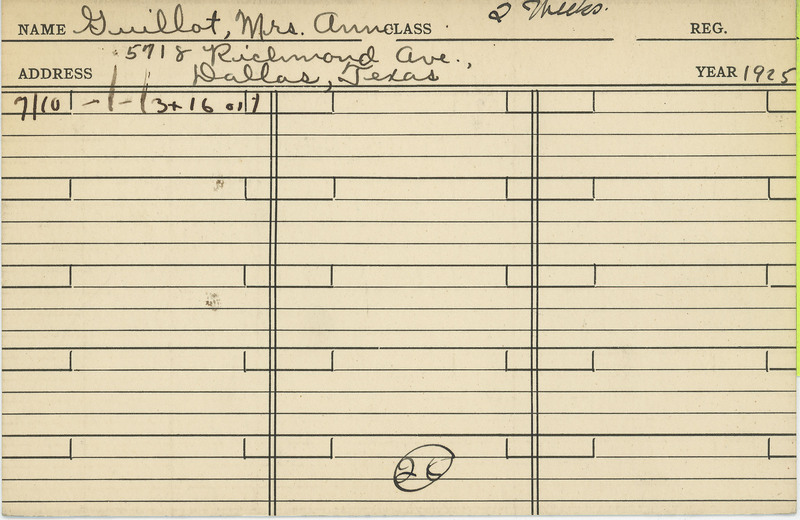 NAME Guillot, Mrs. Ann CLASS 2 Weeks. REG.
5718 Richmond Ave.,
ADDRESS Dallas, Texas YEAR 1925
7/10 3+ 16